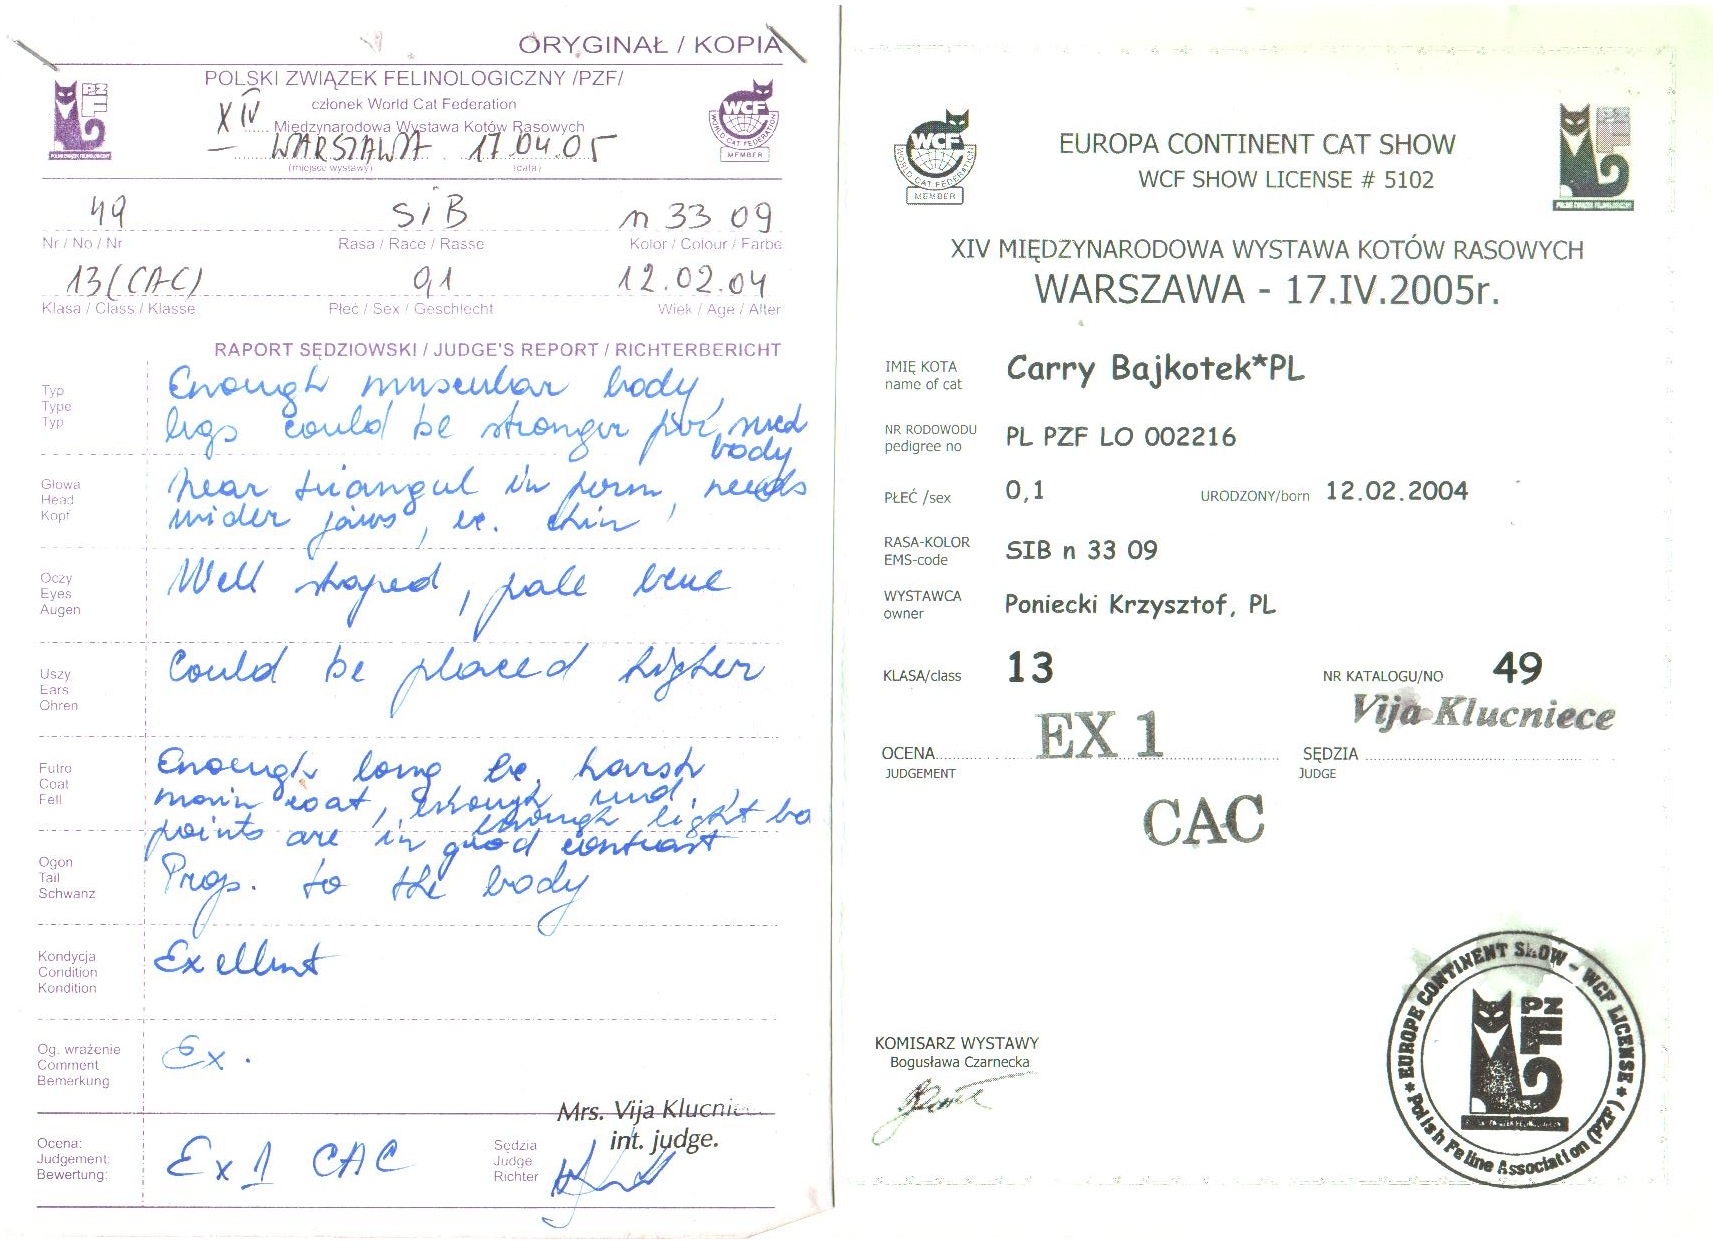 ORYGINAŁ / KOPIA
POLSKI ZWIĄZEK FELINOLOGICZNY /PZF/
członek World Cat Federation
XIV Międzynarodowa Wystawa Kotów Rasowych
WARSZAWA 17.04.05
(miejsce wystawy) (data)
PZF
WCF
WORLD CAT FEDERATION
MEMBER
49 SIB n 33 09
Nr / No / Nr Rasa / Race / Rasse Kolor / Colour / Farbe
13 (CAC) 0,1 12.02.04
Klasa / Class / Klasse Płeć / Sex / Geschlecht Wiek / Age / Alter
RAPORT SĘDZIOWSKI / JUDGE'S REPORT / RICHTERBERICHT
Typ
Type
Typ
Enough muscular body,
legs could be stronger for med
body
Głowa
Head
Kopf
Near triangul in form, needs
wider jaws, chin
Oczy
Eyes
Augen
Well shaped, pale blue
Uszy
Ears
Ohren
Could be placed higher
Futro
Coat
Fell
Enough long be, harsh
main coat, enough und.
enough light bo
points are in good contrast
Ogon
Tail
Schwanz
Prop. to the body
Kondycja
Condition
Kondition
Exellent
Og. wrażenie
Comment
Bemerkung
Ex.
Mrs. Vija Klucnie
int. judge.
Ocena:
Judgement:
Bewertung:
Ex 1 CAC
Sędzia
Judge
Richter
WCF
WORLD CAT FEDERATION
MEMBER
EUROPA CONTINENT CAT SHOW
WCF SHOW LICENSE # 5102
PZF
XIV MIĘDZYNARODOWA WYSTAWA KOTÓW RASOWYCH
WARSZAWA - 17.IV.2005r.
IMIĘ KOTA
name of cat
Carry Bajkotek*PL
NR RODOWODU
pedigree no
PL PZF LO 002216
PŁEĆ /sex 0,1 URODZONY/born 12.02.2004
RASA-KOLOR
EMS-code
SIB n 33 09
WYSTAWCA
owner
Poniecki Krzysztof, PL
KLASA/class 13 NR KATALOGU/NO 49
Vija Klucniece
OCENA EX 1 SĘDZIA
JUDGEMENT JUDGE
CAC
KOMISARZ WYSTAWY
Bogusława Czarnecka
EUROPE CONTINENT SHOW - WCF LICENSE
Polish Feline Association (PZF)
PZF